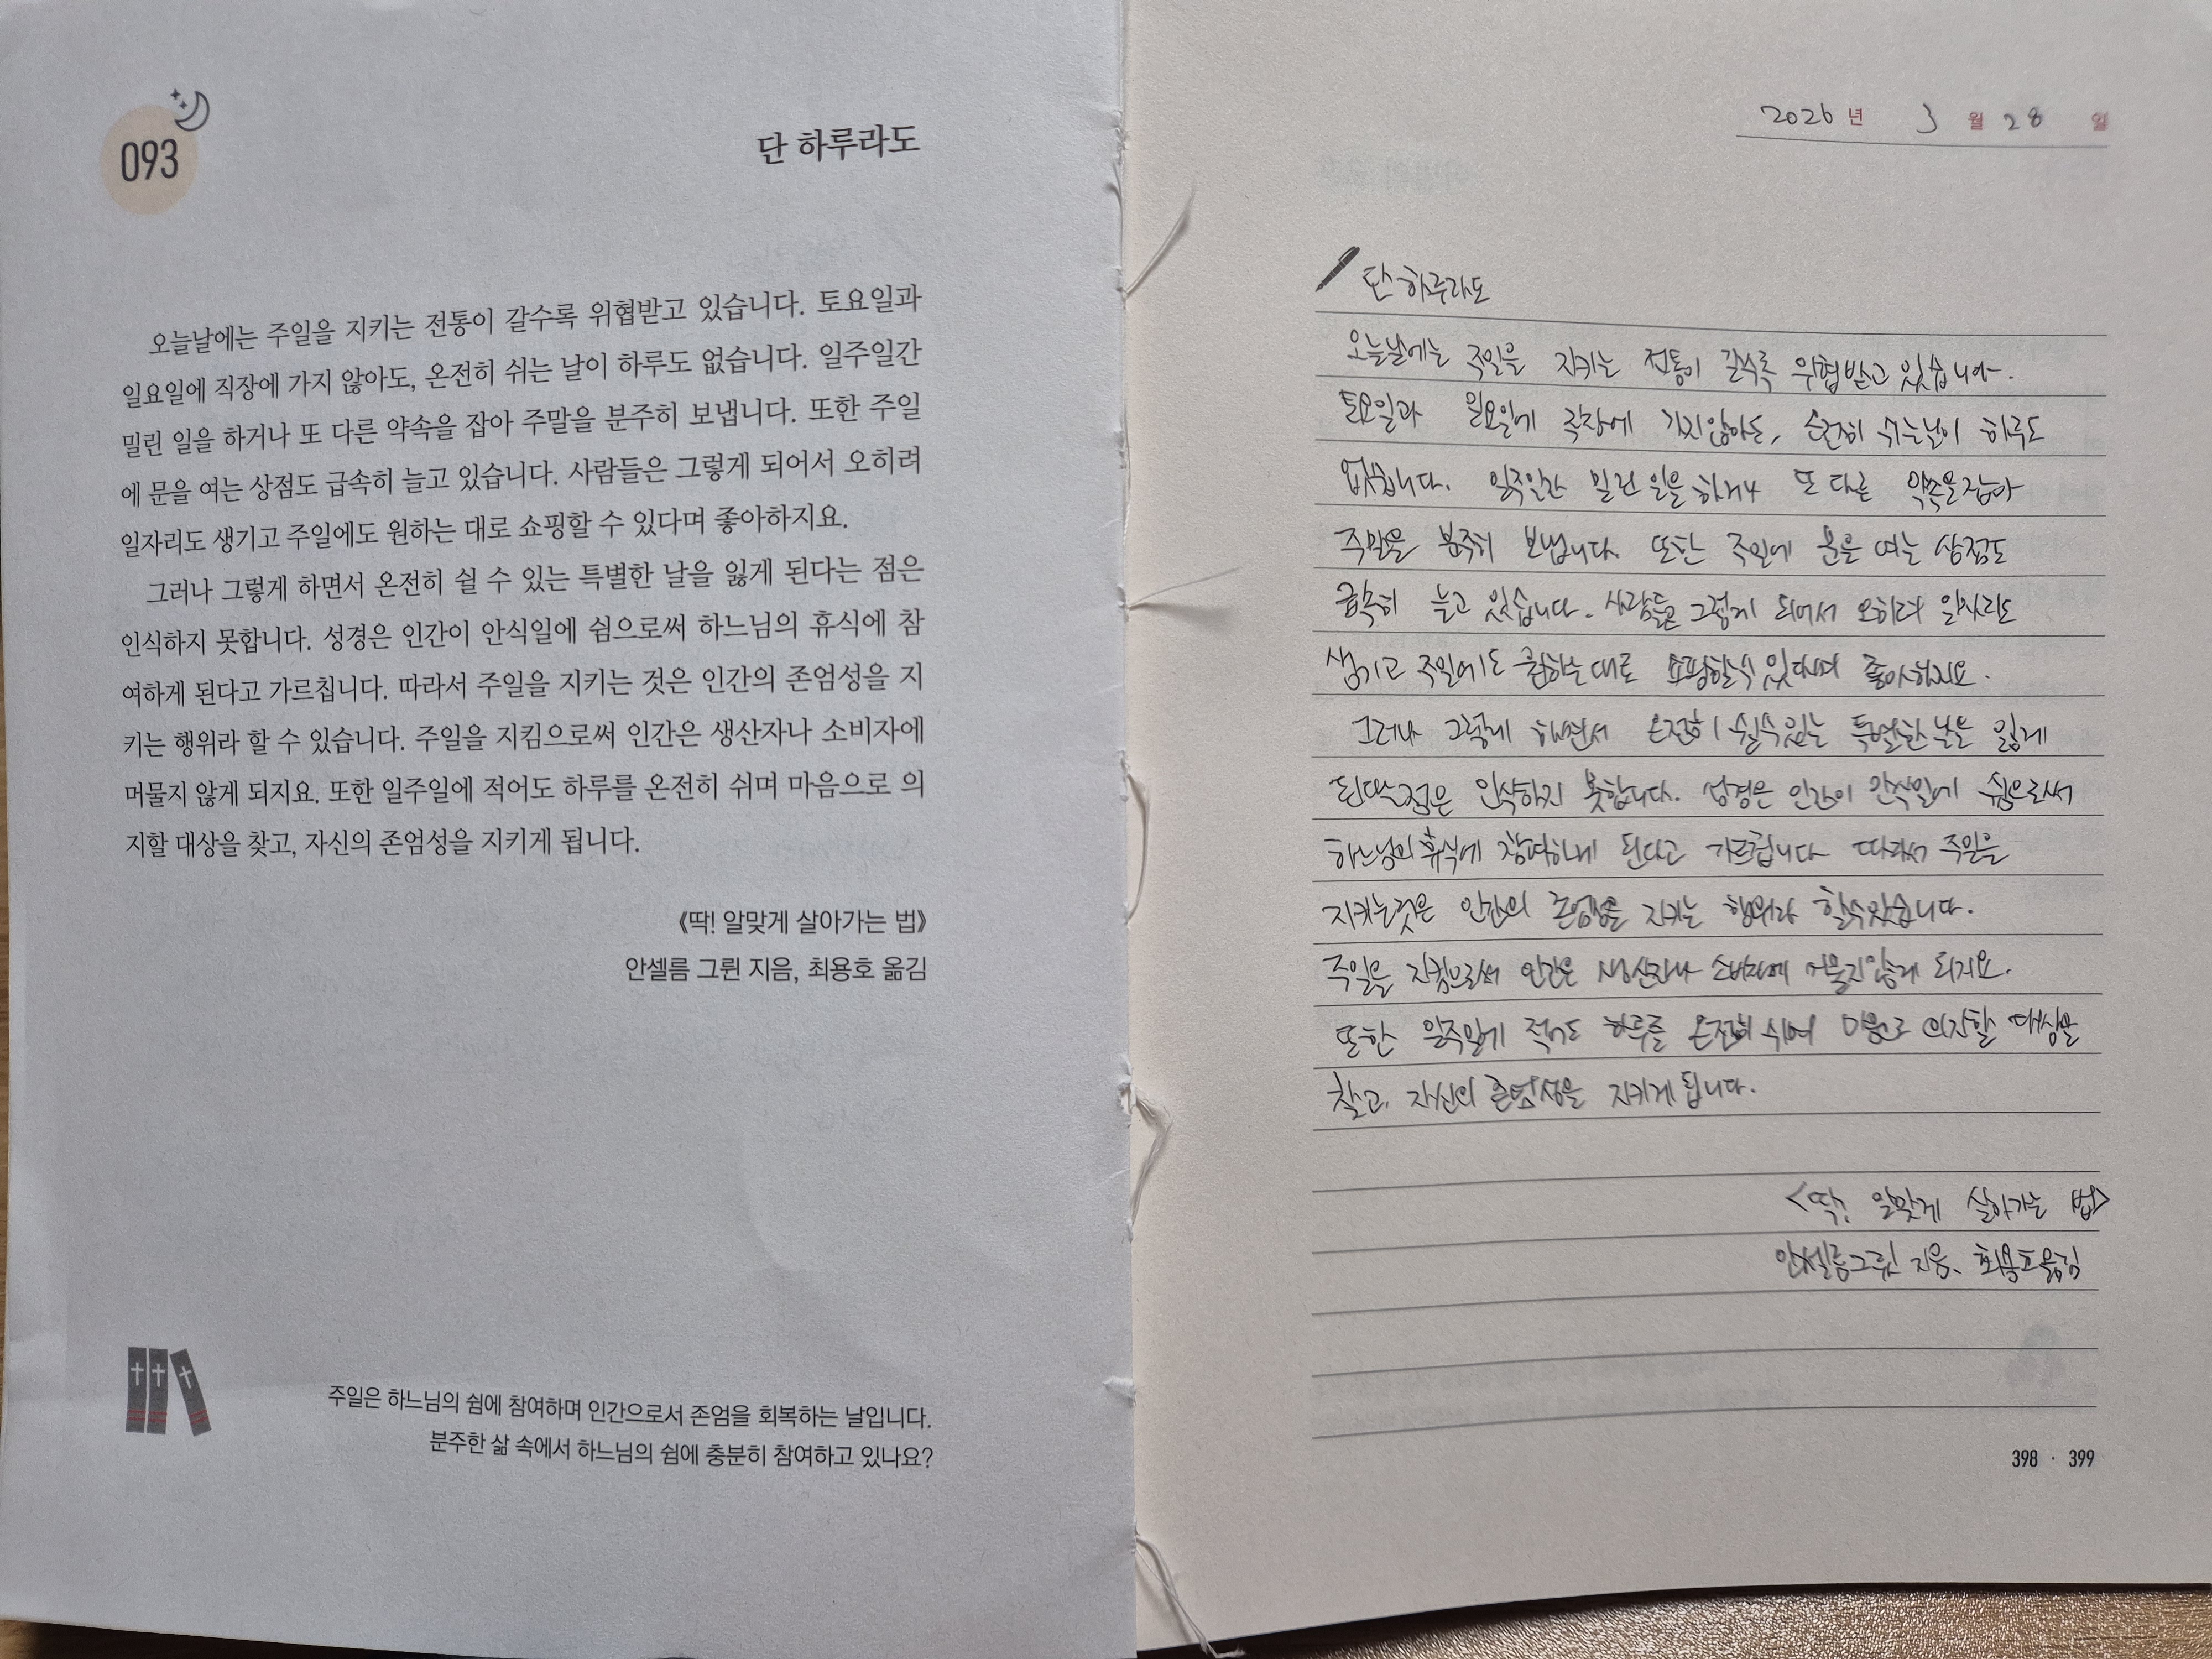 093
단 하루라도
오늘날에는 주일을 지키는 전통이 갈수록 위협받고 있습니다. 토요일과
일요일에 직장에 가지 않아도, 온전히 쉬는 날이 하루도 없습니다. 일주일간
밀린 일을 하거나 또 다른 약속을 잡아 주말을 분주히 보냅니다. 또한 주일
에 문을 여는 상점도 급속히 늘고 있습니다. 사람들은 그렇게 되어서 오히려
일자리도 생기고 주일에도 원하는 대로 쇼핑할 수 있다며 좋아하지요.
그러나 그렇게 하면서 온전히 쉴 수 있는 특별한 날을 잃게 된다는 점은
인식하지 못합니다. 성경은 인간이 안식일에 쉼으로써 하느님의 휴식에 참
여하게 된다고 가르칩니다. 따라서 주일을 지키는 것은 인간의 존엄성을 지
키는 행위라 할 수 있습니다. 주일을 지킴으로써 인간은 생산자나 소비자에
머물지 않게 되지요. 또한 일주일에 적어도 하루를 온전히 쉬며 마음으로 의
지할 대상을 찾고, 자신의 존엄성을 지키게 됩니다.
《딱! 알맞게 살아가는 법》
안셀름 그륀 지음, 최용호 옮김
주일은 하느님의 쉼에 참여하며 인간으로서 존엄을 회복하는 날입니다.
분주한 삶 속에서 하느님의 쉼에 충분히 참여하고 있나요?
2026 년 3 월 28 일
단 하루라도
오늘날에는 주일을 지키는 전통이 갈수록 위협받고 있습니다.
토요일과 일요일에 직장에 가지않아도, 온전히 쉬는날이 하루도
없습니다. 일주일간 밀린 일을 하거나 또 다른 약속을잡아
주말을 분주히 보냅니다. 또한 주일에 문을 여는 상점도
급속히 늘고 있습니다. 사람들은 그렇게 되어서 오히려 일자리도
생기고 주일에도 원하는대로 쇼핑할수있다며 좋아하지요.
그러나 그렇게 하면서 온전히 쉴수있는 특별한날을 잃게
된다는점은 인식하지 못합니다. 성경은 인간이 안식일에 쉼으로써
하느님의 휴식에 참여하게 된다고 가르칩니다 따라서 주일을
지키는것은 인간의 존엄성을 지키는 행위라 할수있습니다.
주일을 지킴으로써 인간은 생산자나 소비자에 머물지않게 되지요.
또한 일주일에 적어도 하루를 온전히 쉬며 마음으로 의지할 대상을
찾고, 자신의 존엄성을 지키게 됩니다.
<딱! 알맞게 살아가는 법>
안셀름그륀 지음, 최용호옮김
398 · 399